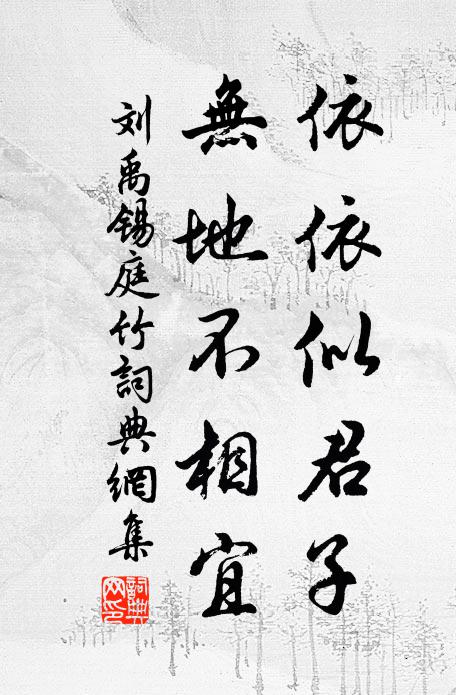 依依似君子
無地不相宜
刘禹锡庭竹詞典網集
詞典網印